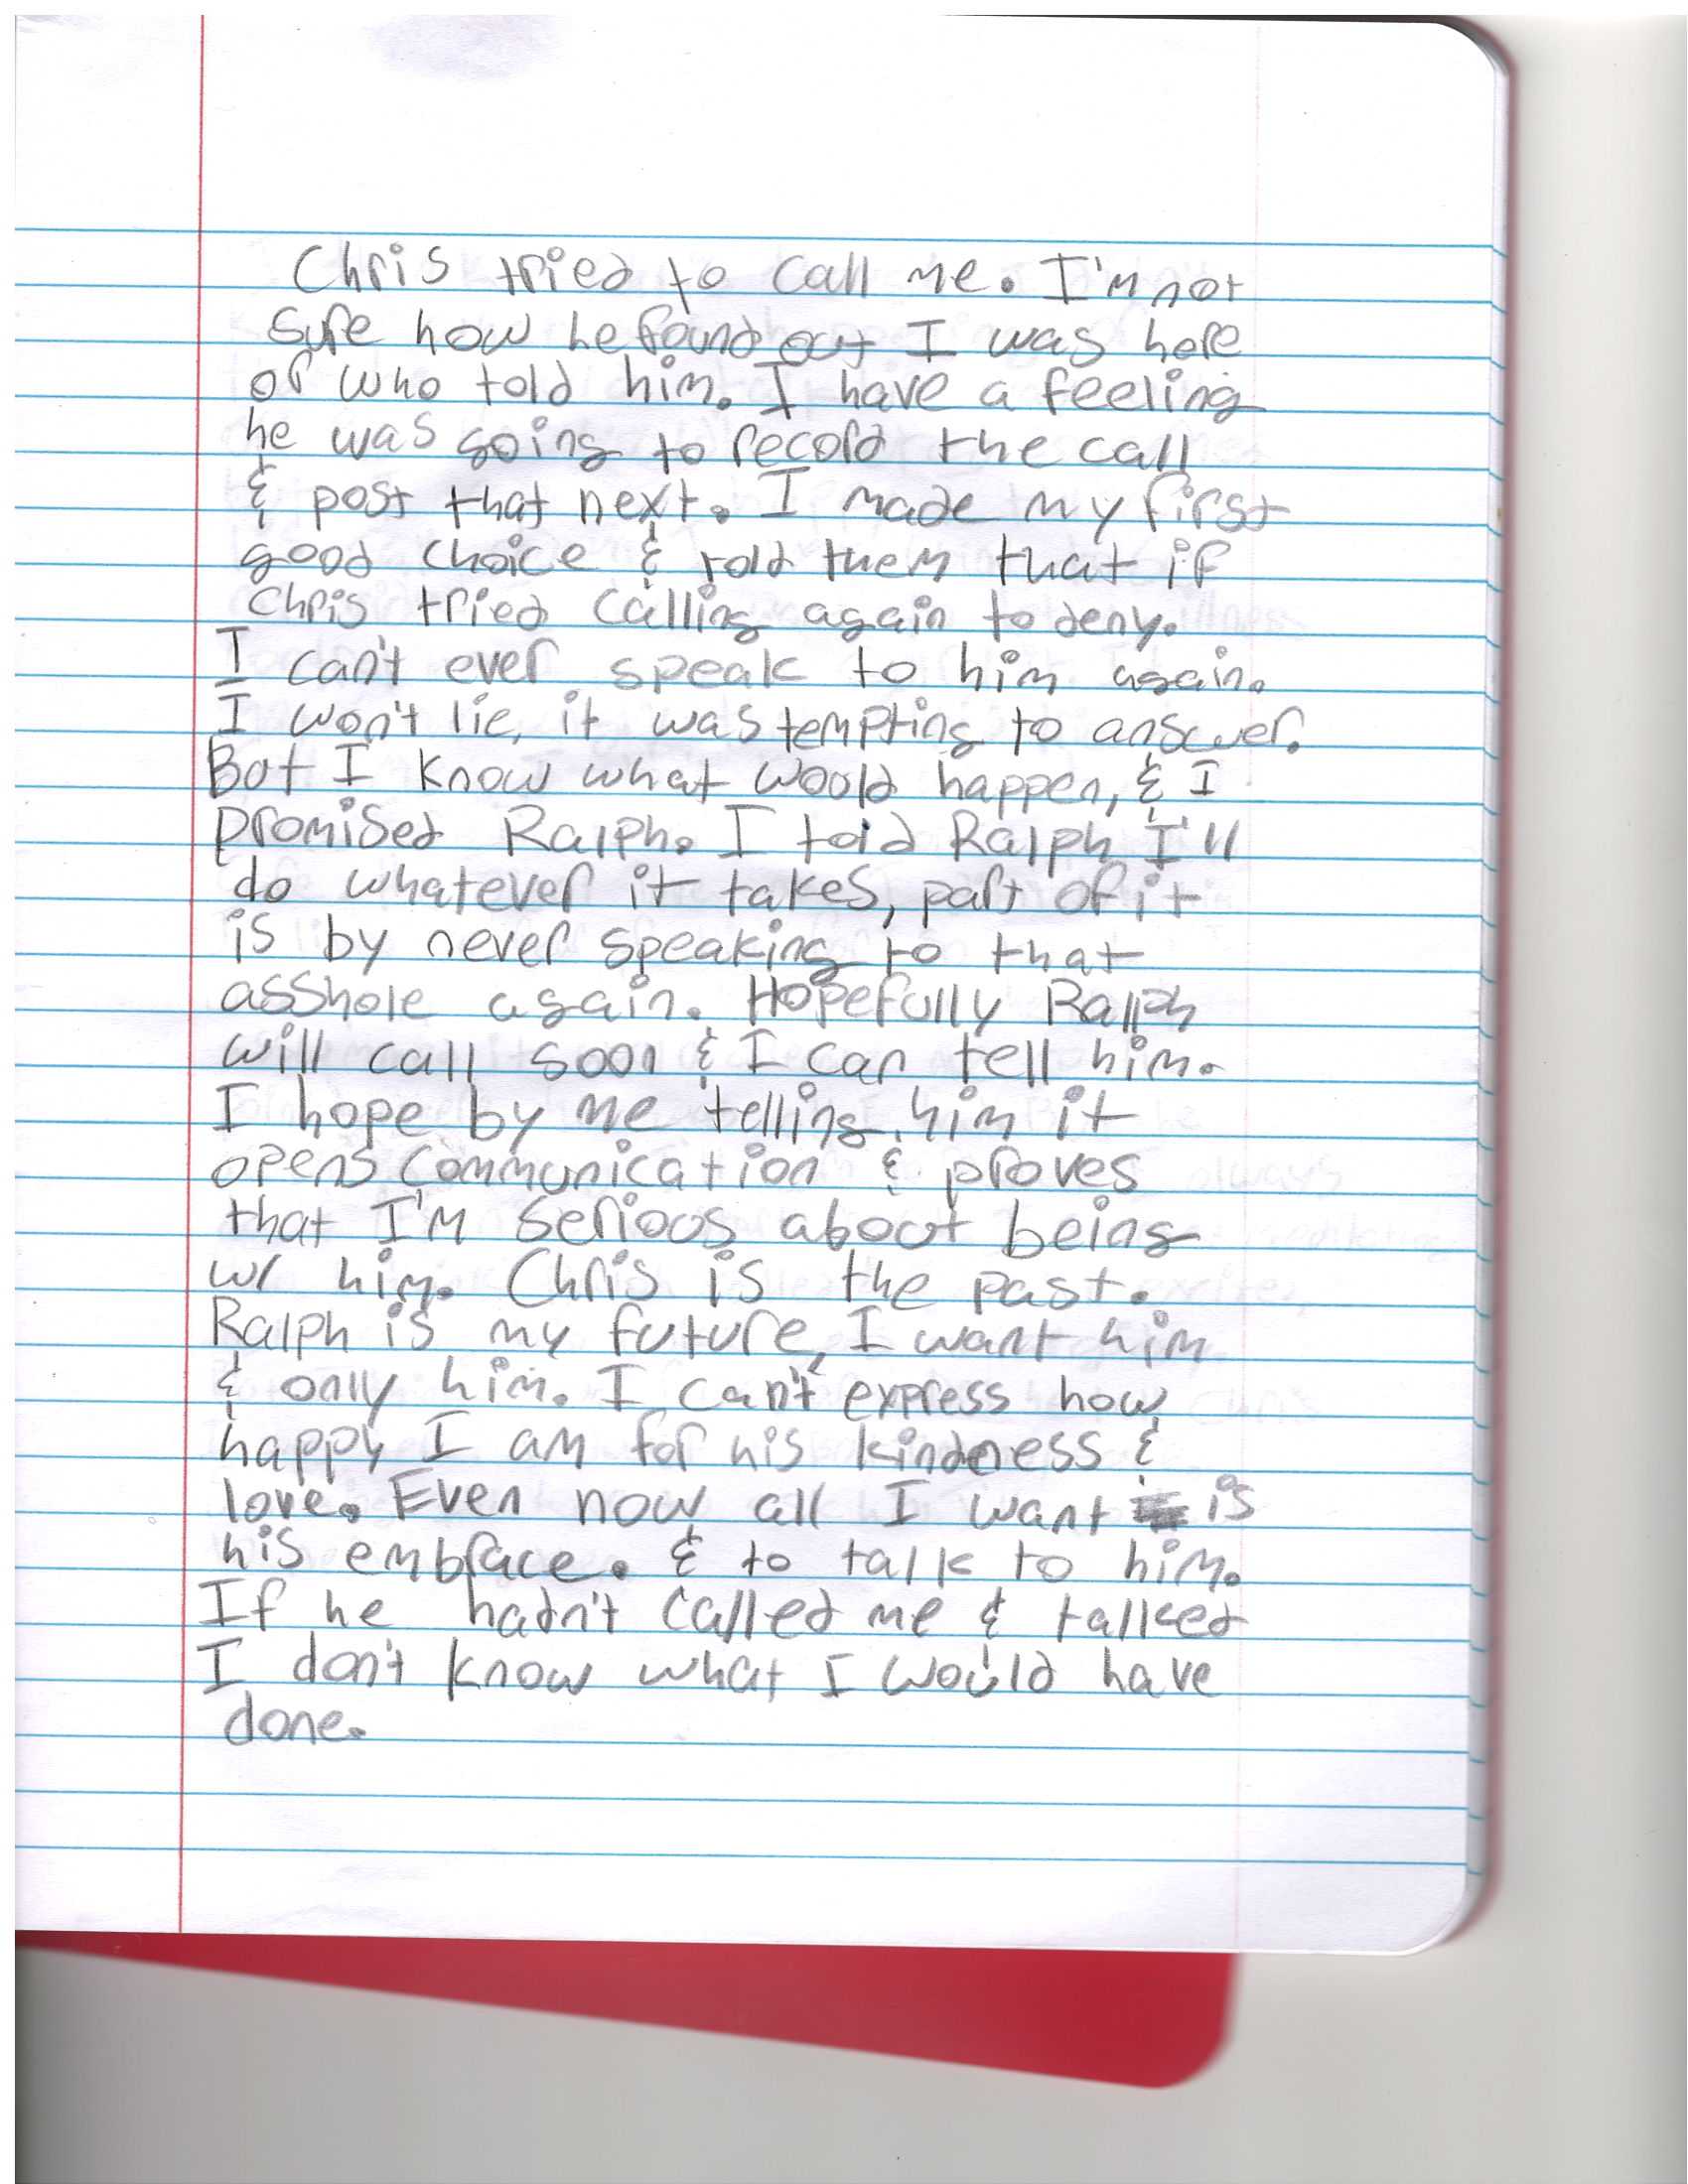 Chris tried to call me. I'm not
sure how he found out I was here
or who told him. I have a feeling
he was going to record the call
& post that next. I made my first
good choice & told them that if
Chris tried calling again to deny.
I can't ever speak to him again.
I won't lie, it was tempting to answer.
But I know what would happen, & I
promised Ralph. I told Ralph I'll
do whatever it takes, part of it
is by never speaking to that
asshole again. Hopefully Ralph
will call soon & I can tell him.
I hope by me telling him it
opens communication & proves
that I'm serious about being
w/ him. Chris is the past.
Ralph is my future, I want him
& only him. I can't express how
happy I am for his kindness &
love. Even now all I want is
his embrace. & to talk to him.
If he hadn't called me & talked
I don't know what I would have
done.